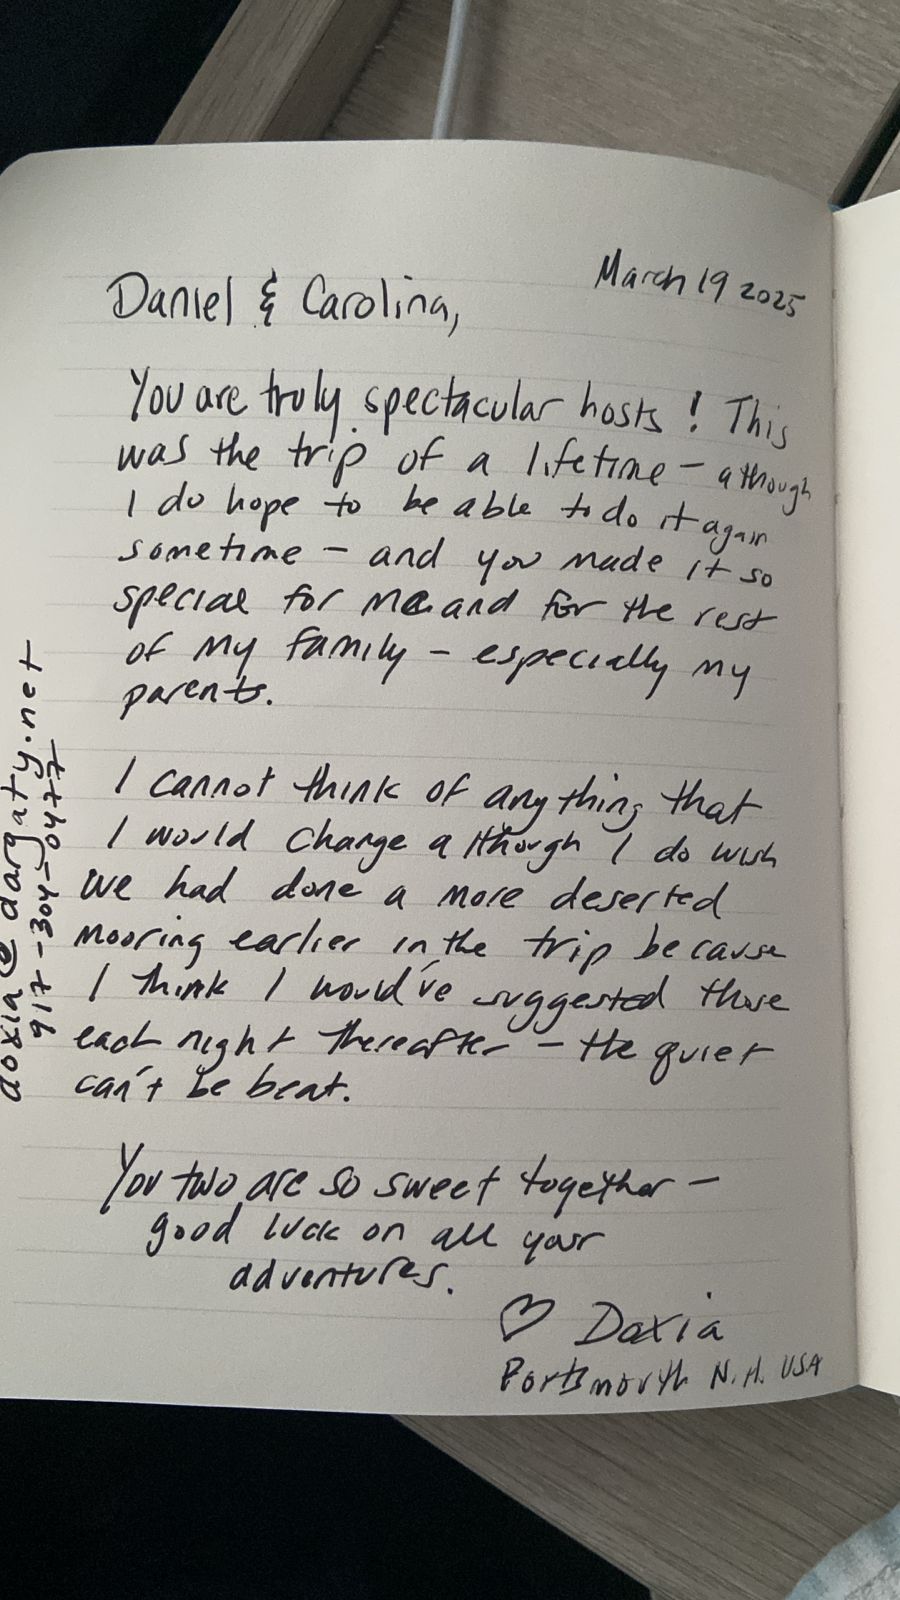 March 19 2025
Daniel & Carolina,
You are truly spectacular hosts! This
was the trip of a lifetime - although
I do hope to be able to do it again
sometime - and you made it so
special for me and for the rest
of my family - especially my
parents.
I cannot think of anything that
I would change although I do wish
we had done a more deserted
mooring earlier in the trip because
I think I would've suggested those
each night thereafter - the quiet
can't be beat.
You two are so sweet together -
good luck on all your
adventures.
♡ Doxia
Portsmouth N.H. USA
doxia@dargaty.net
917-304-0477